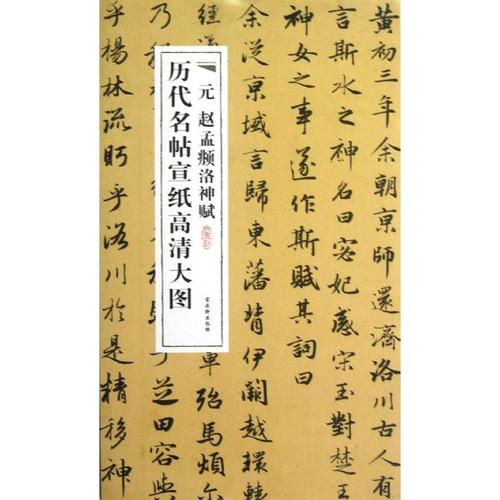 黄初三年余朝京師還濟洛川古人有
言斯水之神名曰宓妃感宋玉對楚王
神女之事遂作斯賦其詞曰
余從京域言歸東藩背伊闕越轘轅
經
車殆馬煩尔
乃税
芝田容與
乎楊林流眄乎洛川於是精移神
元 赵孟頫洛神赋
历代名帖宣纸高清大图
古吴轩出版社